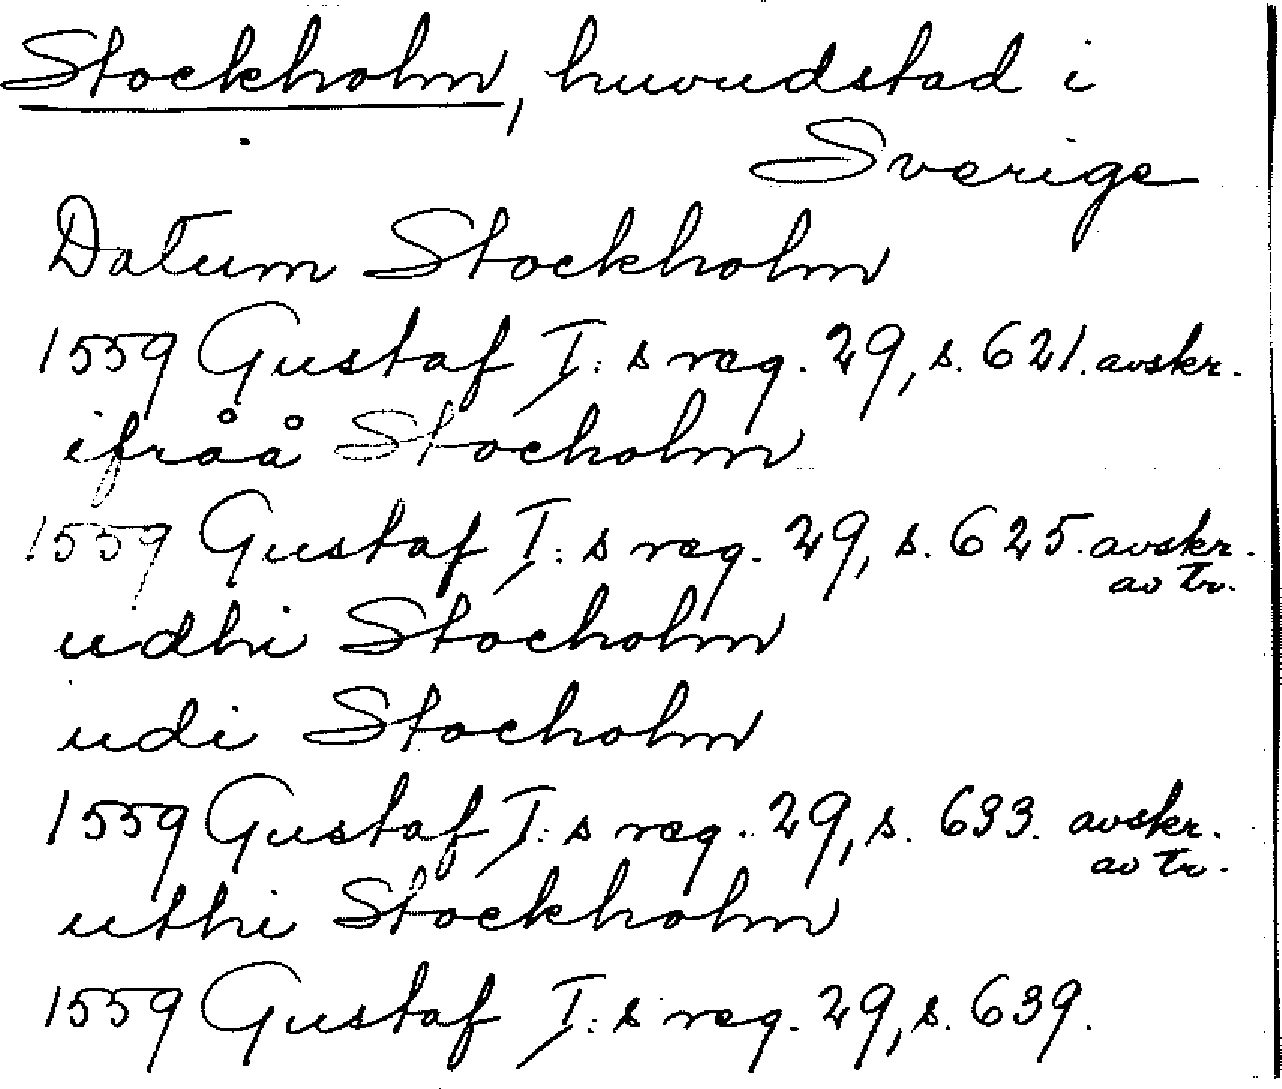 Stockholm, huvudstad i
Sverige
Datum Stockholm
1559 Gustaf I:s reg. 29, s. 621. avskr.
ifråå Stocholm
1559 Gustaf I:s reg. 29, s. 625. avskr.
av tr.
udhi Stocholm
udi Stocholm
1559 Gustaf I:s reg. 29, s. 633. avskr.
av tr.
uthi Stockholm
1559 Gustaf I:s reg. 29, s. 639.